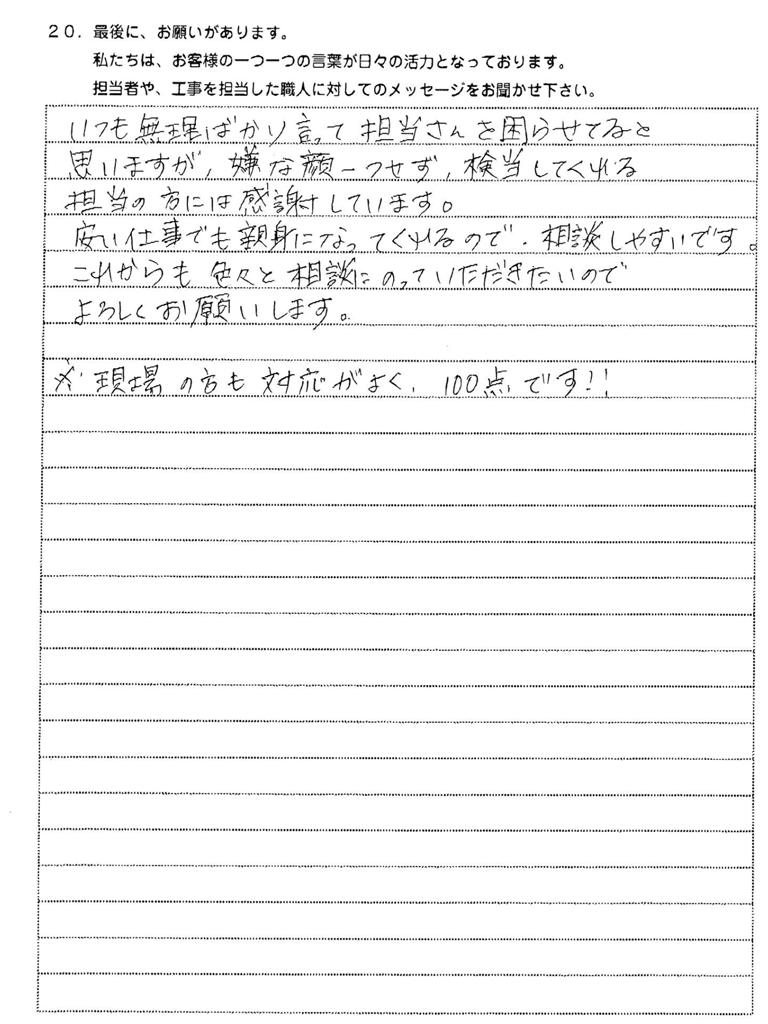 20. 最後に、お願いがあります。
私たちは、お客様の一つ一つの言葉が日々の活力となっております。
担当者や、工事を担当した職人に対してのメッセージをお聞かせ下さい。
いつも無理ばかり言って担当さんを困らせてると
思いますが、嫌な顔一つせず、検当してくれる
担当の方には感謝しています。
安い仕事でも親身になってくれるので、相談しやすいです。
これからも色々と相談にのっていただきたいので
よろしくお願いします。
※現場の方も対応がよく、100点です!!